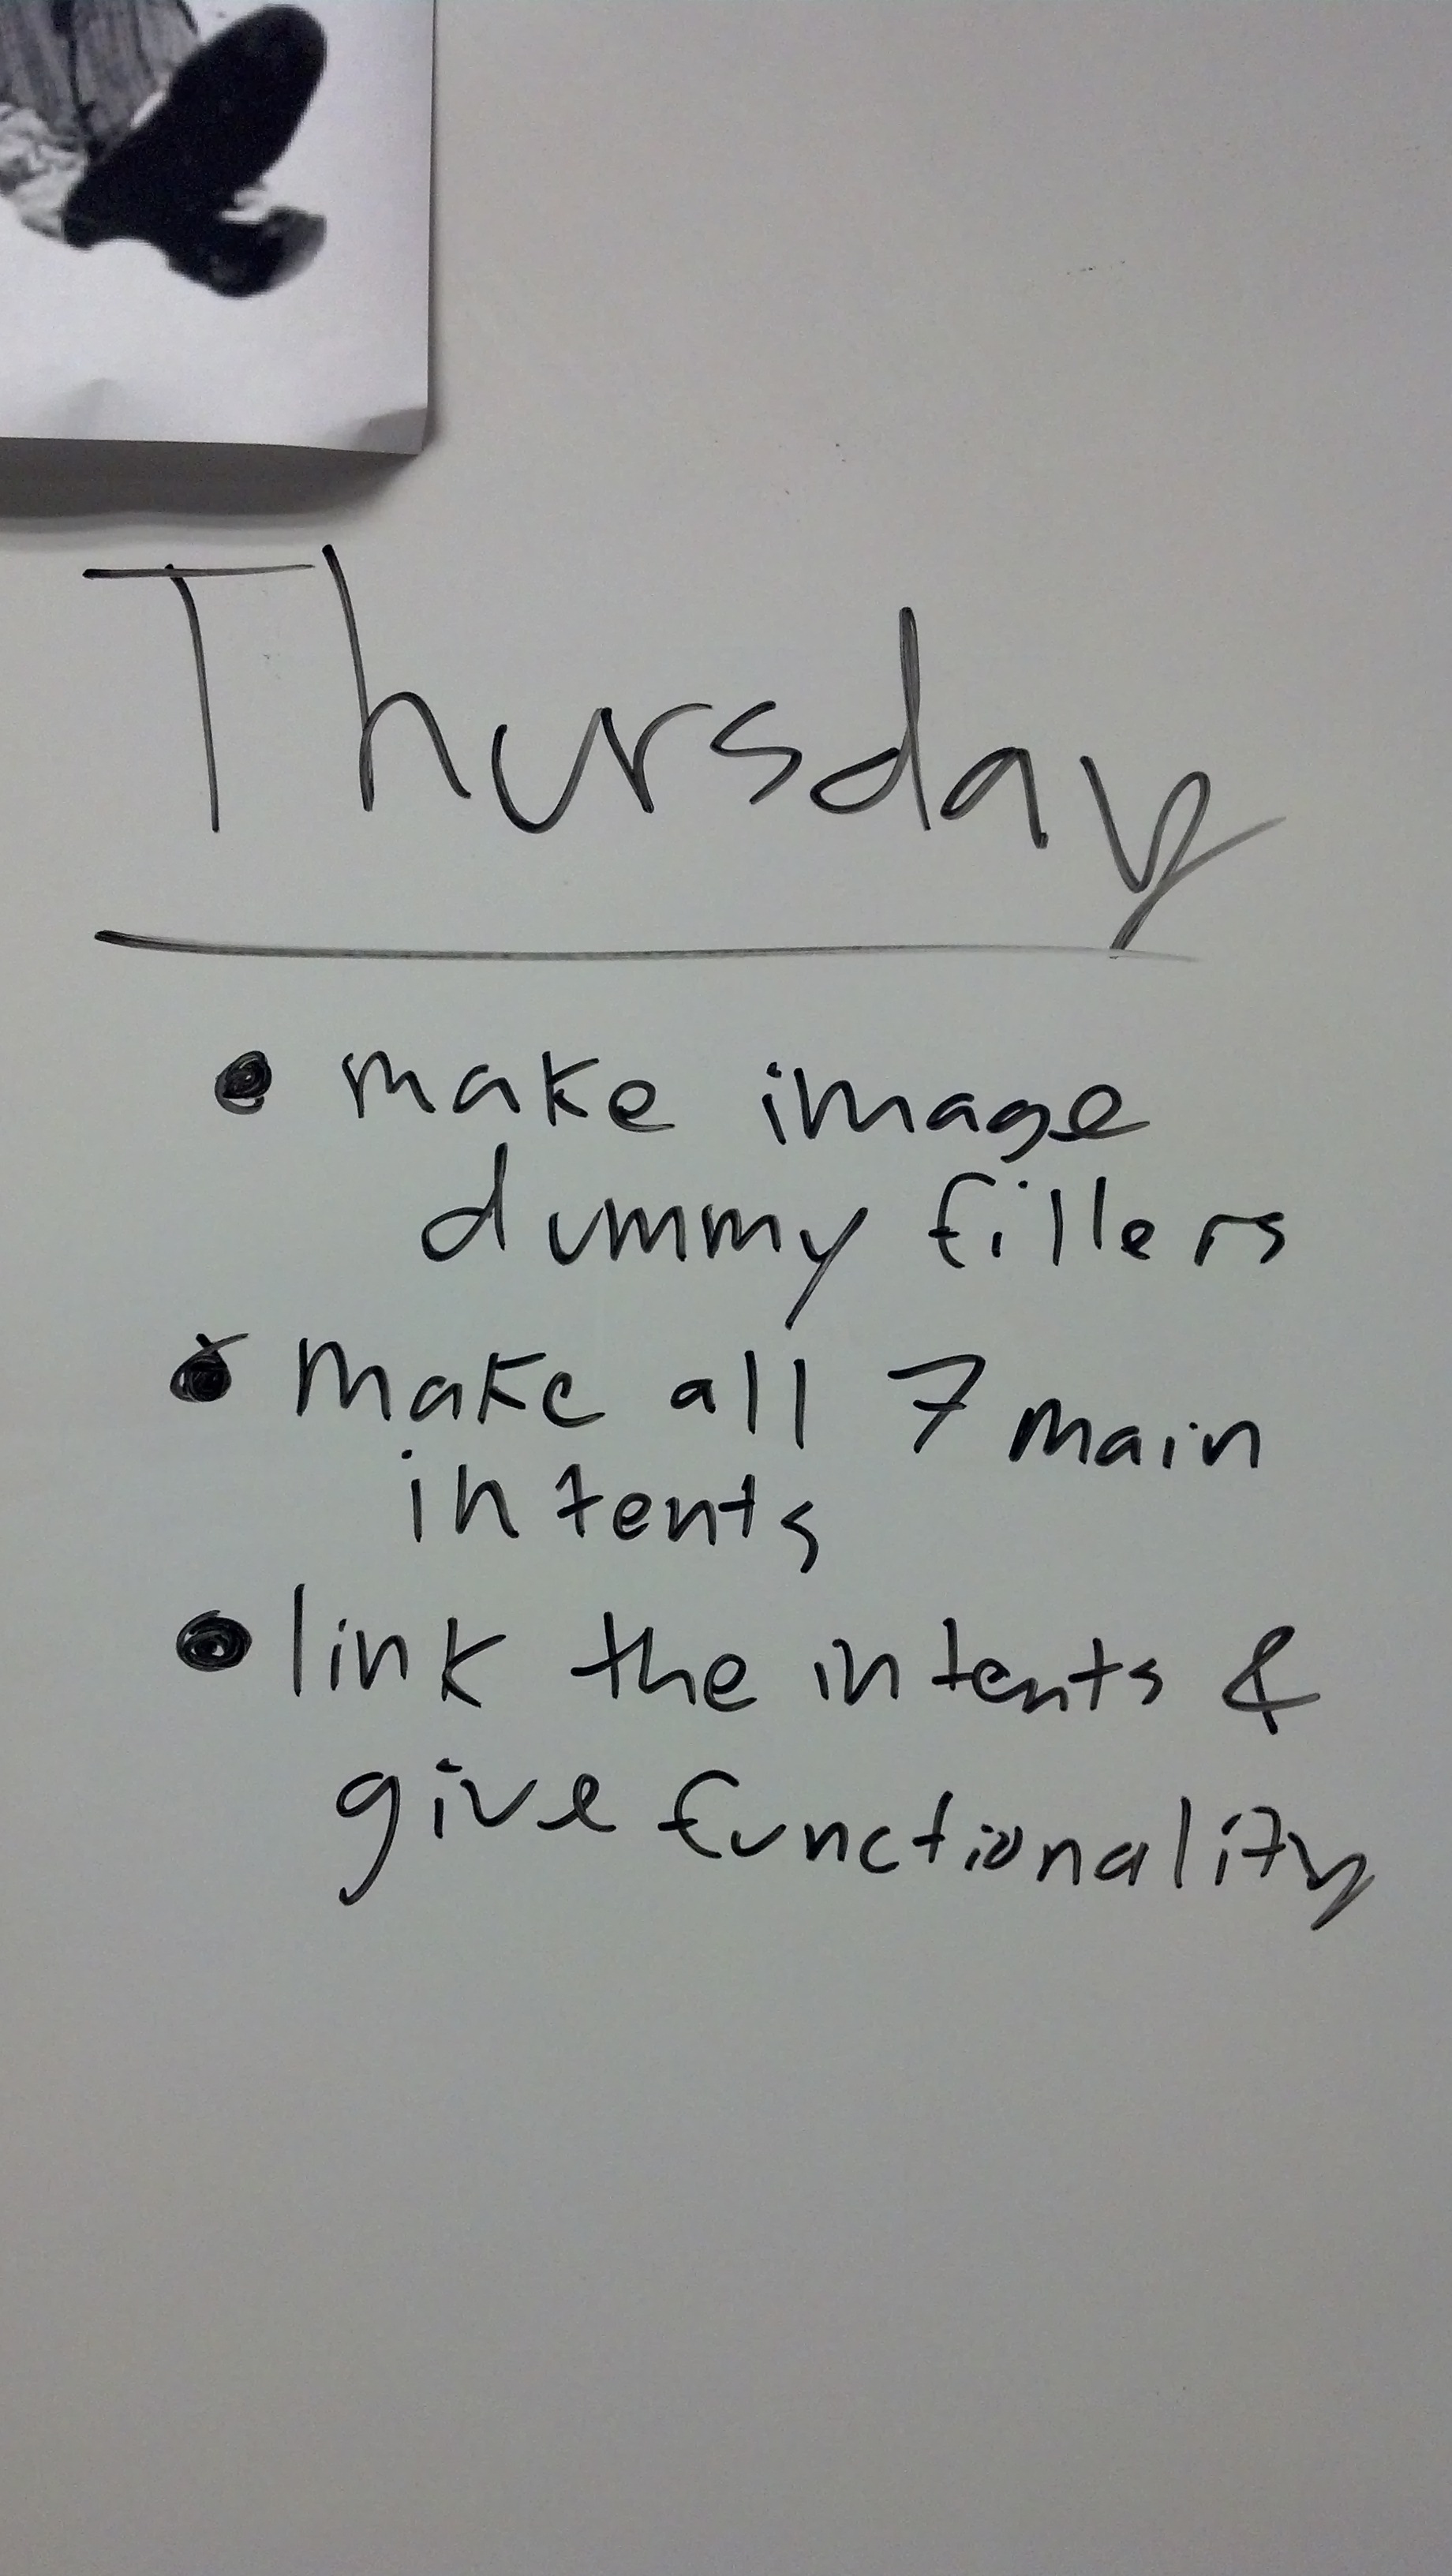 Thursday
• make image
dummy fillers
• make all 7 main
intents
• link the intents &
give functionality